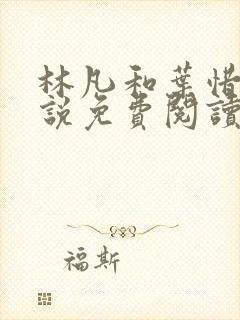 林凡和葉惜
說免費閱讀
福斯